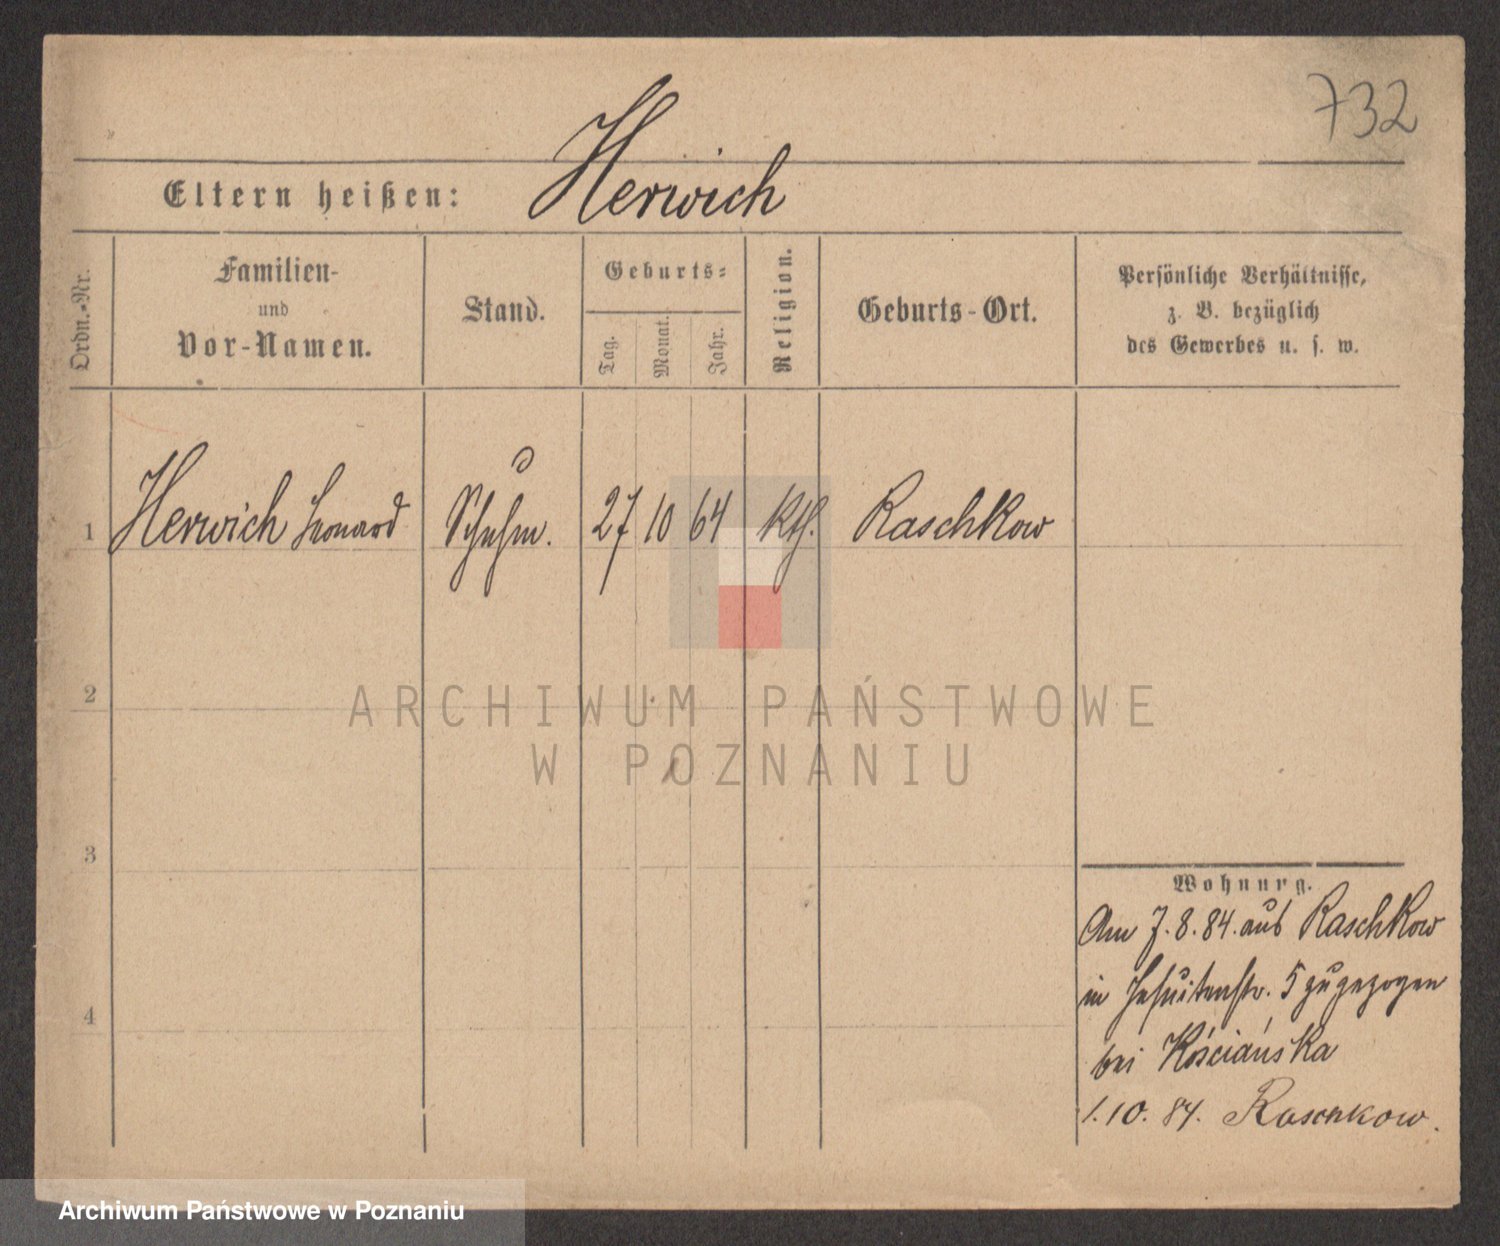 732
Herwich
Eltern heißen:
Ordn.-Nr.
Familien-
und
Vor-Namen.
Stand.
Geburts-
Tag.
Monat.
Jahr.
Religion.
Geburts-Ort.
Persönliche Verhältnisse,
z. B. bezüglich
des Gewerbes u. s. w.
1 Herwich Leonard Schuhm. 27 10 64 kth. Raschkow
2
3
4
Wohnung.
Am 7.8.84. aus Raschkow
in Jesuitenstr. 5 zugezogen
bei Kościańska
1.10.84. Raschkow.
ARCHIWUM PAŃSTWOWE
W POZNANIU
Archiwum Państwowe w Poznaniu